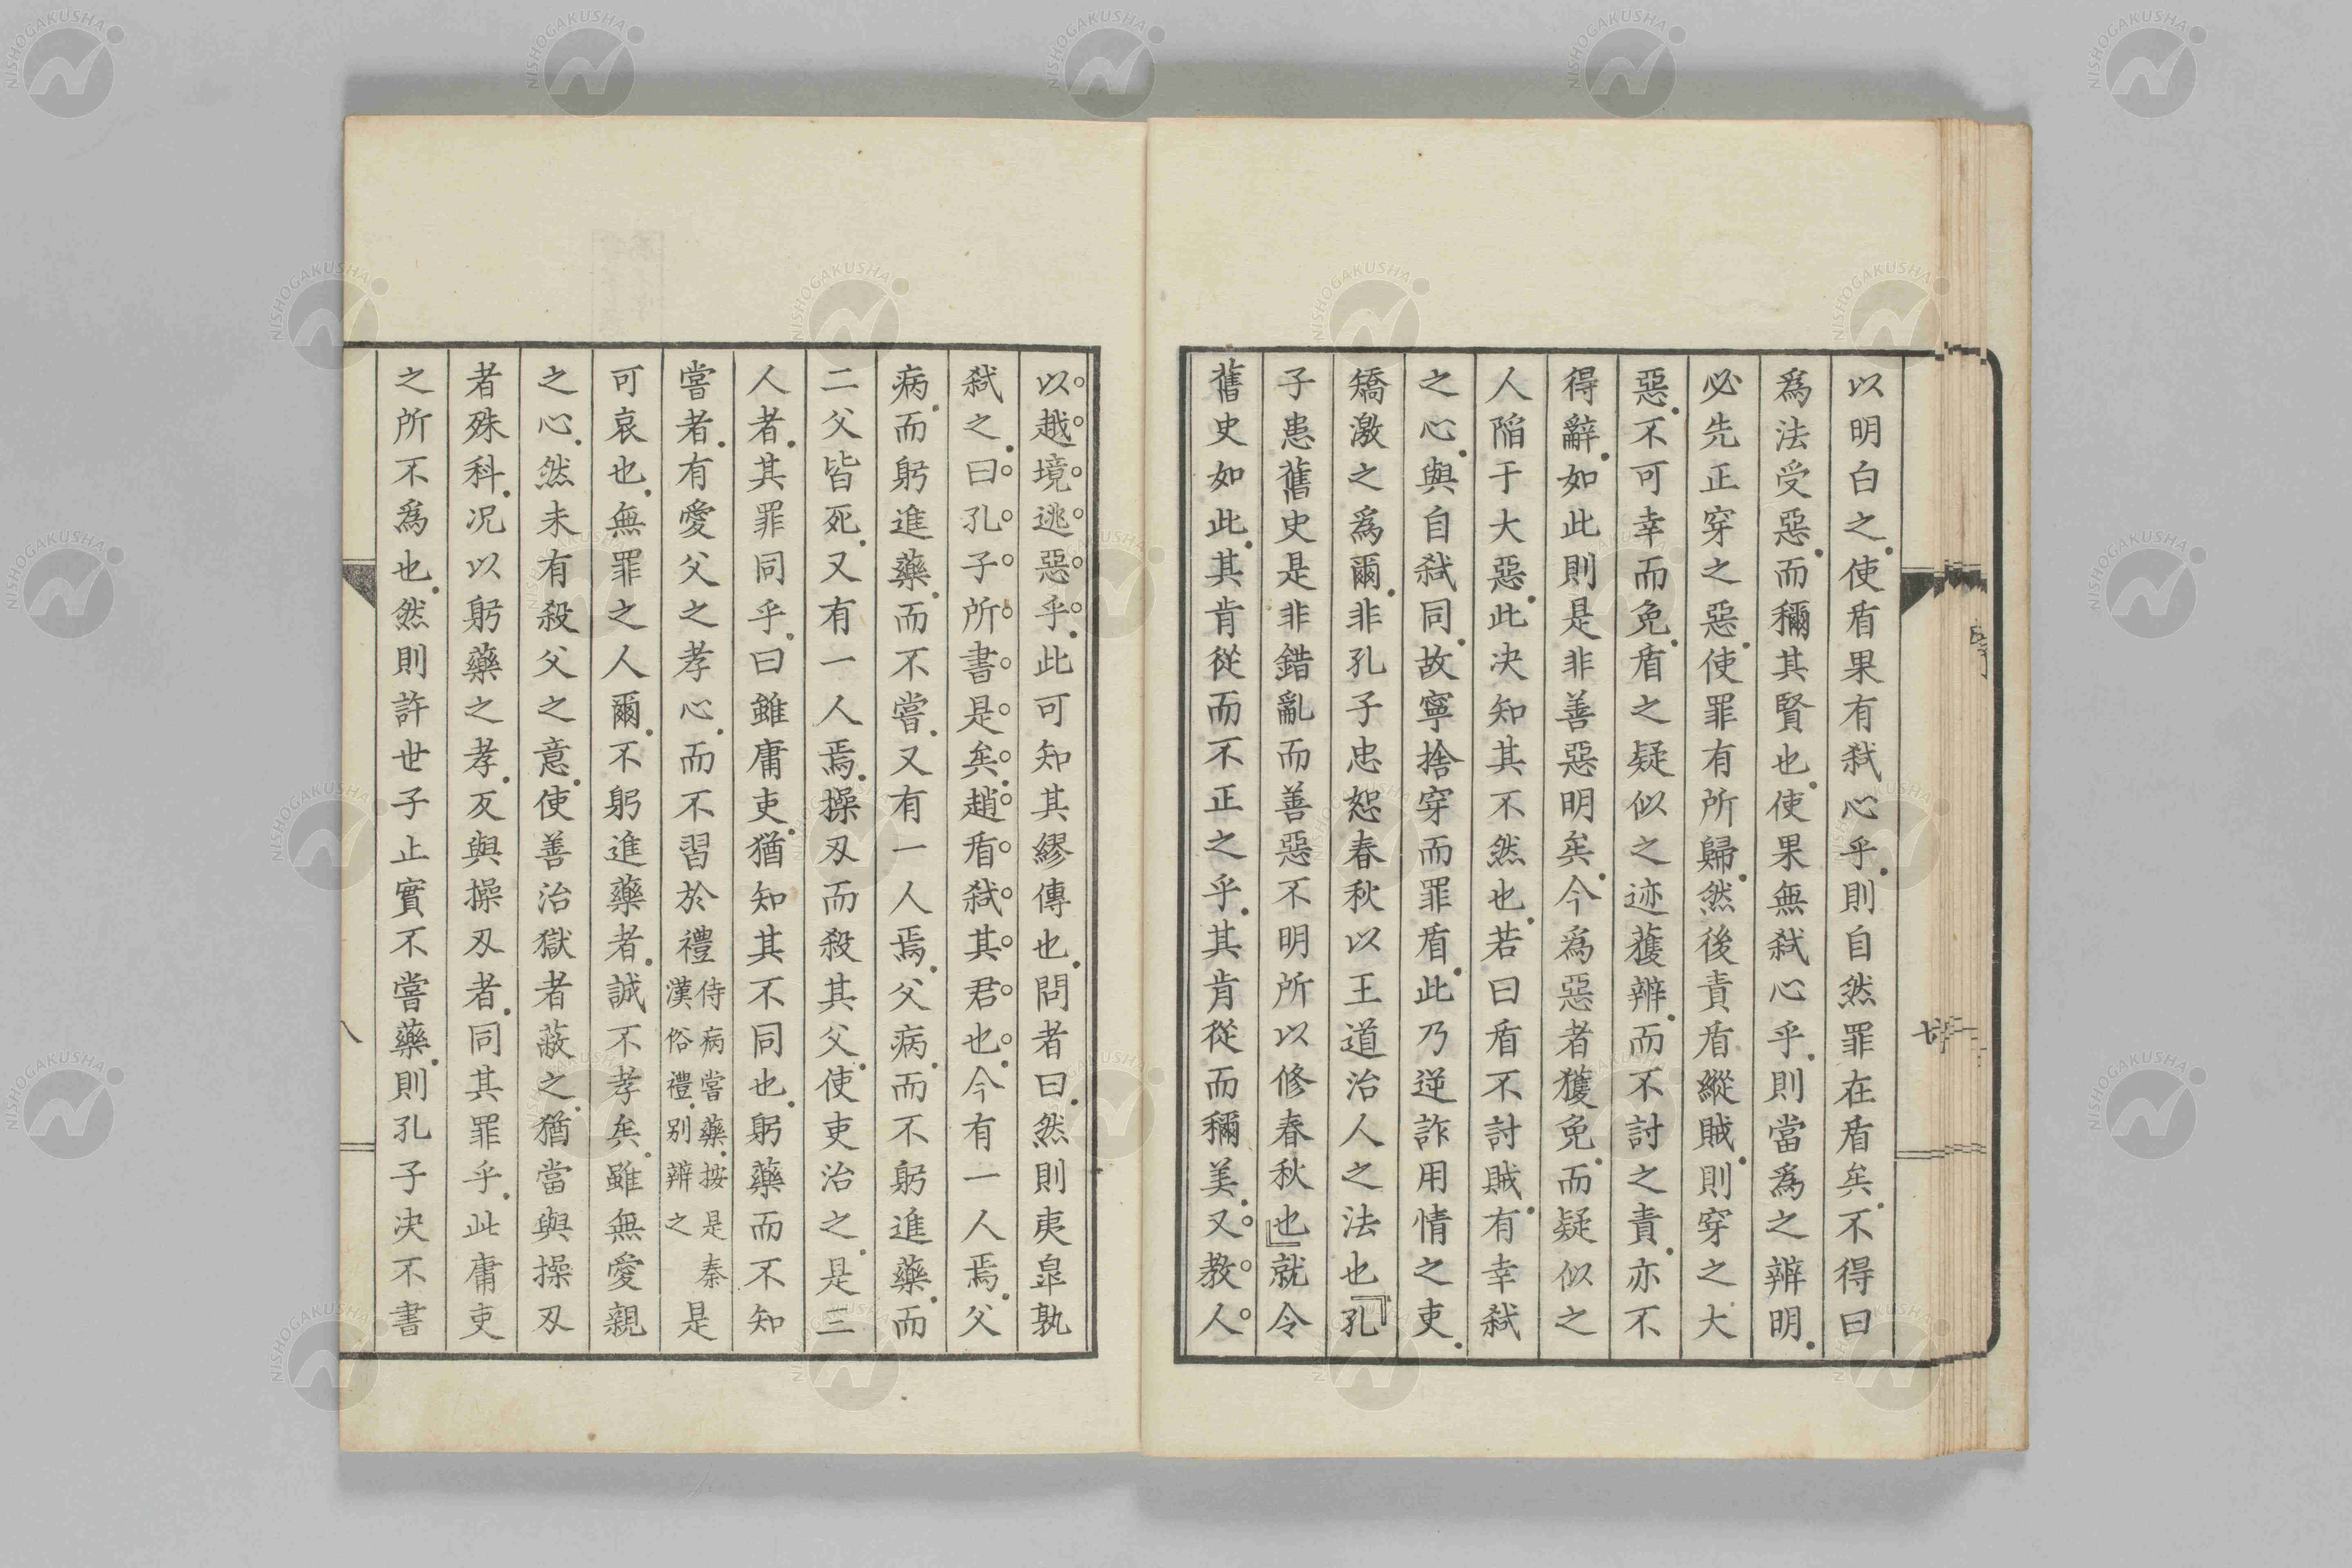 以明白之使盾果有弑心乎則自然罪在盾矣不得曰
爲法受惡而稱其賢也使果無弑心乎則當爲之辨明
必先正穿之惡使罪有所歸然後責盾縱賊則穿之大
惡不可幸而免盾之疑似之迹獲辨而不討之責亦不
得辭如此則是非善惡明矣今爲惡者獲免而疑似之
人陷于大惡此決知其不然也若曰盾不討賊有幸弑
之心與自弑同故寧捨穿而罪盾此乃逆詐用情之吏
矯激之爲爾非孔子忠恕春秋以王道治人之法也孔
子患舊史是非錯亂而善惡不明所以修春秋也就令
舊史如此其肯從而不正之乎其肯從而稱美又教人
以越境逃惡乎此可知其繆傳也問者曰然則夷皐孰
弑之曰孔子所書是矣趙盾弑其君也今有一人焉父
病而躬進藥而不嘗又有一人焉父病而不躬進藥而
二父皆死又有一人焉操刄而殺其父使吏治之是三
人者其罪同乎曰雖庸吏猶知其不同也躬藥而不知
嘗者有愛父之孝心而不習於禮侍病嘗藥按是秦漢俗禮別辨之是
可哀也無罪之人爾不躬進藥者誠不孝矣雖無愛親
之心然未有殺父之意使善治獄者蔽之猶當與操刄
者殊科況以躬藥之孝反與操刄者同其罪乎此庸吏
之所不爲也然則許世子止實不嘗藥則孔子決不書
八
NISHOGAKUSHA